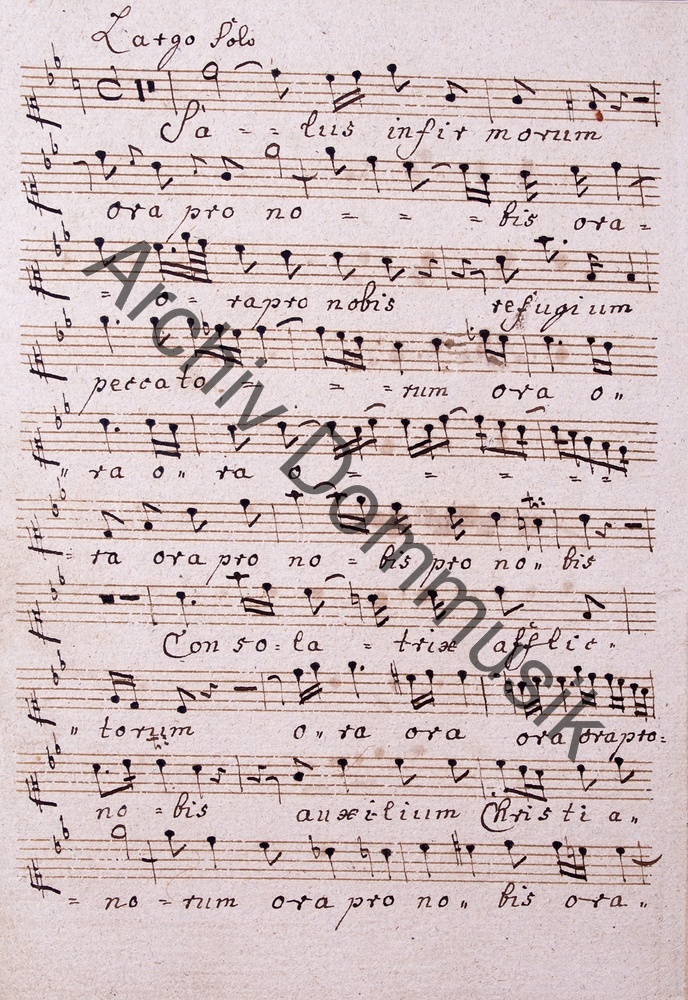 Largo Solo
Sa = = lus infir morum
ora pro no = = = bis ora =
= o = rapro nobis refugium
peccato = = = rum ora o„
„ ra o„ ra o = = = =
= ra ora pro no = bis pro no„ bis
Con so = la = trix afflic„
„ torum o„ ra ora ora orapro=
no = bis auxilium Christi a„
= no = rum ora pro no„ bis ora„
Archiv Dommusik